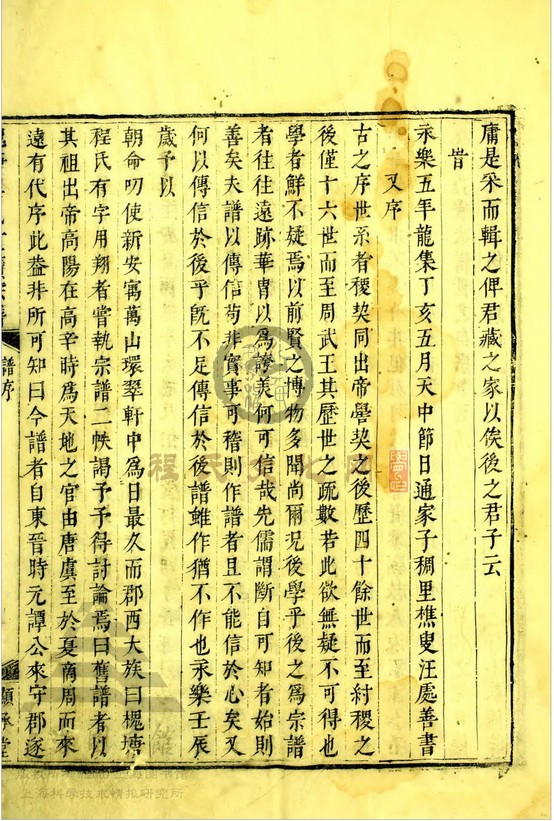 庸是采而輯之俾君藏之家以俟後之君子云
昔
永樂五年龍集丁亥五月天中節日通家子稠里樵叟汪處善書
又序
古之序世系者稷契同出帝嚳契之後歷四十餘世而至紂稷之
後僅十六世而至周武王其歷世之疏數若此欲無疑不可得也
學者鮮不疑焉以前賢之博物多聞尚爾況後學乎後之爲宗譜
者往往遠跡華胄以爲誇美何可信哉先儒謂斷自可知者始則
善矣夫譜以傳信苟非實事可稽則作譜者且不能信於心矣又
何以傳信於後乎旣不足傳信於後譜雖作猶不作也永樂壬辰
歲予以
朝命叨使新安寓萬山環翠軒中爲日最久而郡西大族曰槐塘
程氏有字用翔者嘗執宗譜二帙謁予予得討論焉曰舊譜者以
其祖出帝高陽在高辛時爲天地之官由唐虞至於夏商周而來
遠有代序此葢非所可知曰今譜者自東晉時元譚公來守郡遂
譜序
顯承堂
程氏文化网
上海科学技术情报研究所